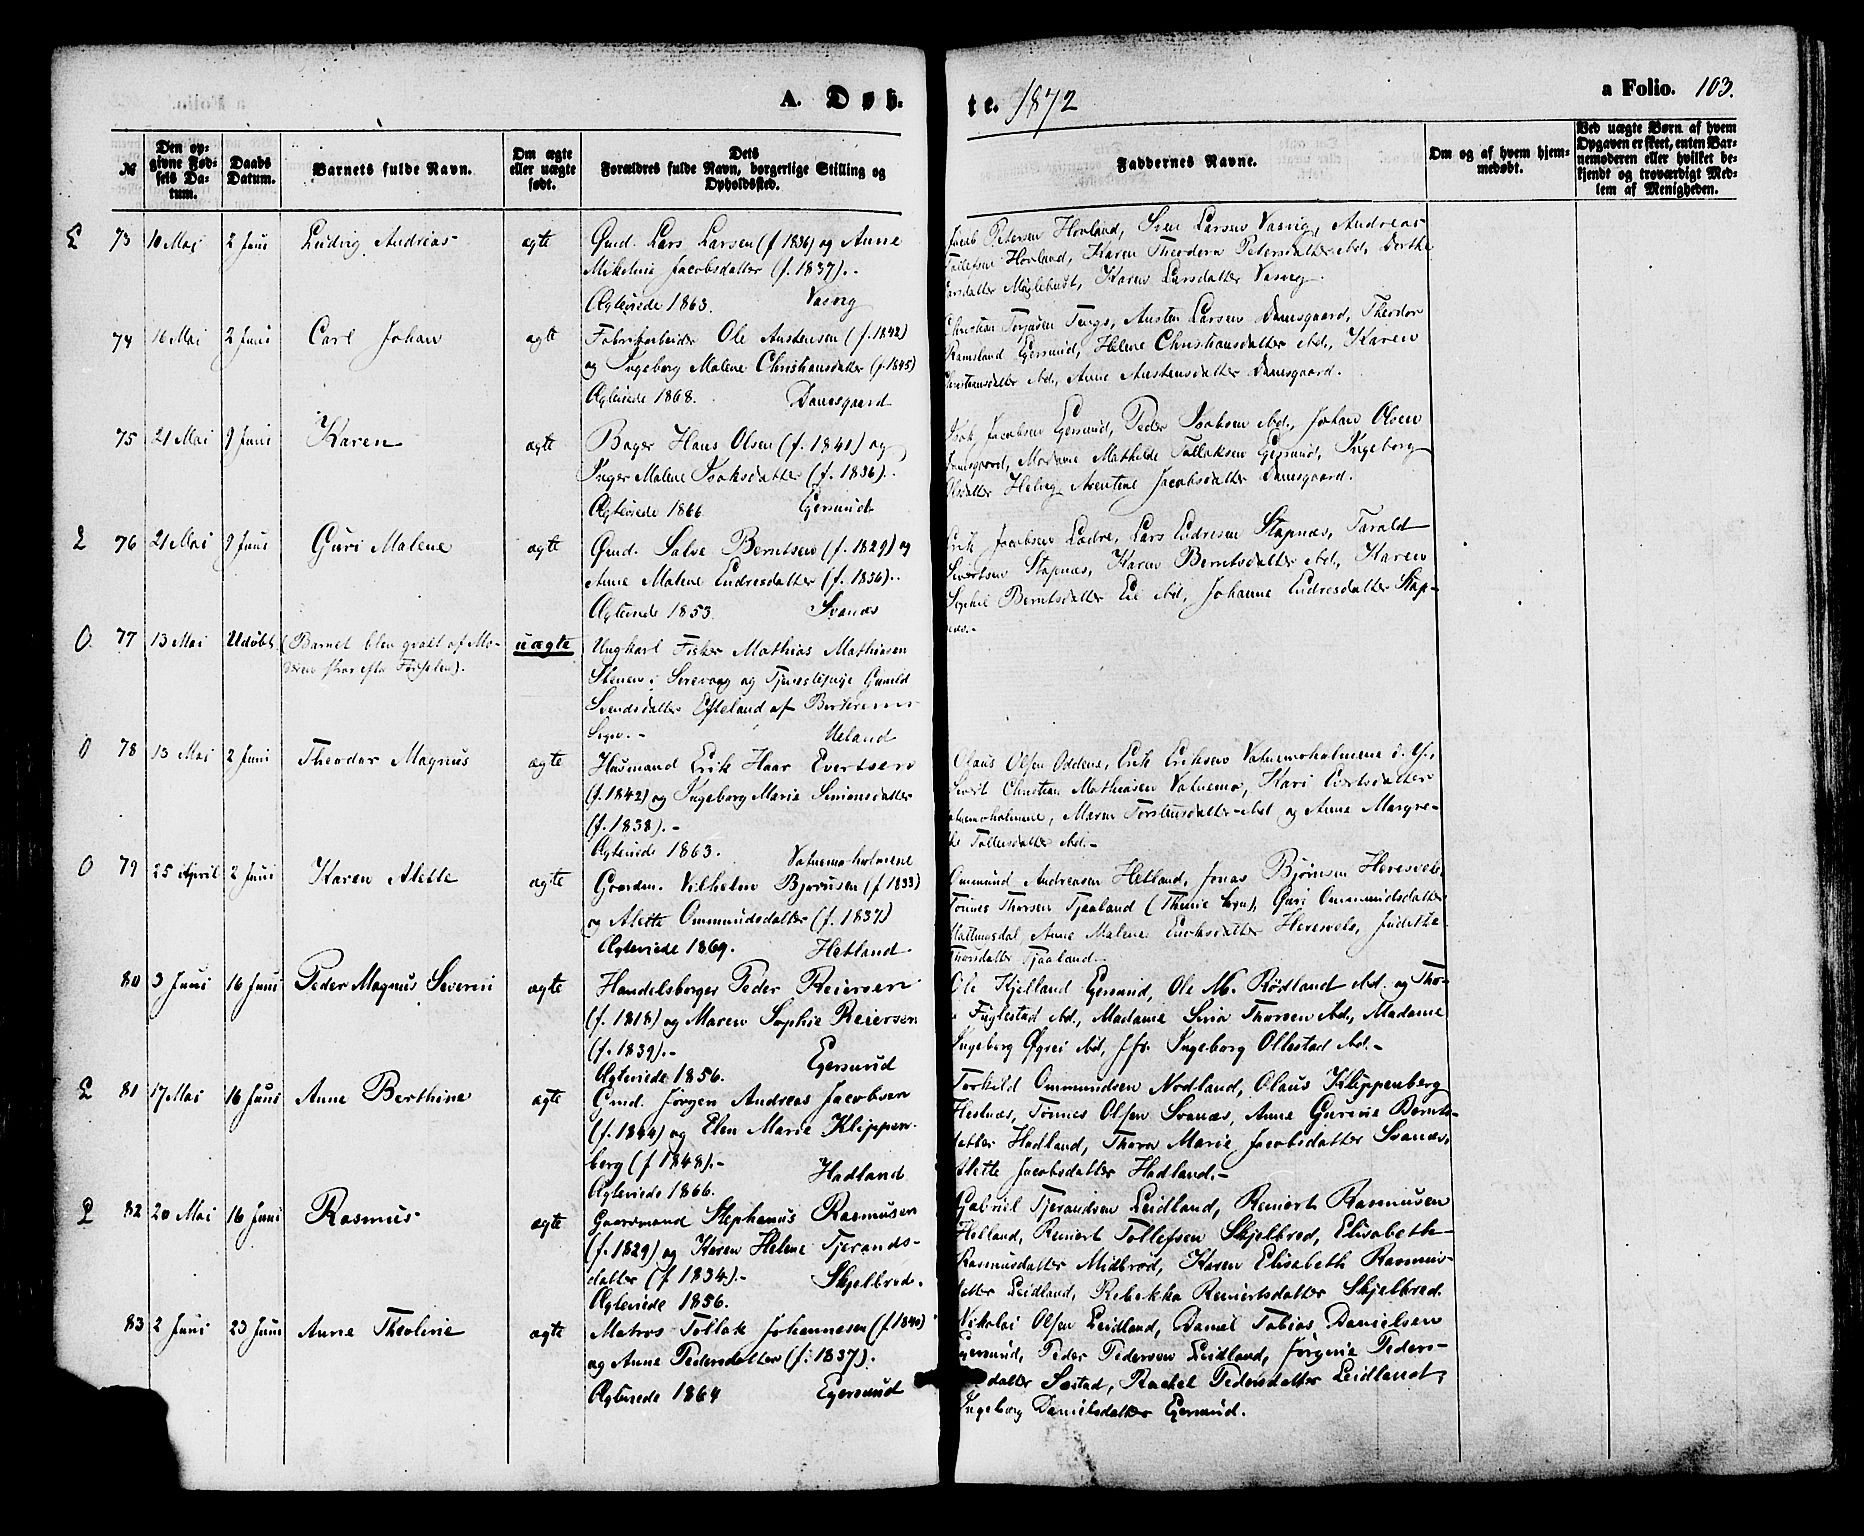 A. Døb-
te. 1872
a Folio. 103.
№
Den op-
givne Fød-
sels Da-
tum.
Daabs
Datum.
Barnets fulde Navn.
Om ægte
eller uægte
født.
Dets
Forældres fulde Navn, borgerlige Stilling og
Opholdssted.
Faddernes Navne.
Om og af hvem hjem-
medøbt.
Ved uægte Børn af hvem
Opgaven er skeet, enten Bar-
nemoderen eller hvilket be-
kjendt og troværdigt Med-
lem af Menigheden.
E 73 10 Mai 2 Juni Ludvig Andreas ægte Gmd. Lars Larsen (f 1836) og Anne
Mikeline Jacobsdatter (f. 1837).-
Ægteviede 1863. Vasvig
Jacob Petersen Hovland, Sven Larsen Vasvig, Andreas
Tollefsen Hovland, Karen Theodora Petersdatter ibd, Dorthe
Larsdatter Myglehust, Karen Larsdatter Vasvig
74 16 Mai 2 Juni Carl Johan ægte Fabrikarbeider Ole Austensen (f. 1842)
og Ingeborg Malene Christiansdatter (f. 1845)
Ægteviede 1868. Damsgaard
Christian Torjusen Tengs, Austen Larsen Damsgaard, Theodor
Ramsland Egersund, Helene Christiansdatter ibd., Karen
Christiansdatter ibd., Anne Austensdatter Damsgaard.
75 21 Mai 9 Juni Karen ægte Bager Hans Olsen (f. 1841) og
Inger Malene Isaksdatter (f. 1836).
Ægteviede 1866 Egersund
Isak Jacobsen Egersund, Peder Isaksen ibd., Johan Olsen
Damsgaard, Madame Mathilde Tollaksen Egersund, Ingeborg
Olsdatter Helvig, Arentine Jacobsdatter Damsgaard.
E 76 21 Mai 9 Juni Guri Malene ægte Gmd. Salve Berntsen (f. 1829) og
Anne Malene Endresdatter (f. 1836).
Ægteviede 1853. Svanæs
Erik Jacobsen Lædre, Lars Endresen Stapnæs, Tarald
Sivertsen Stapnæs, Karen Berntsdatter ibd, Karen
Sophie Berntsdatter Eie ibd, Johanne Endresdatter Stap-
næs.-
O. 77 13 Mai Udøbt (Barnet blev qvalt af Mo-
deren strax efter Fødselen). uægte Ungkarl Fisker Mathias Mathiasen
Stenen i Sirevaag og Tjenestepige Gunild
Svendsdatter Efteland af Berkrems
Sogn.- Ueland
O 78 13 Mai 2 Juni Theodor Magnus ægte Husmand Erik Haar Evertsen
(f. 1842) og Ingeborg Marie Simonsdatter
(f. 1838).-
Ægteviede 1863. Vatnemoholmene
Olaus Olsen Oddene, Erik Eriksen Vatnemoholmene d. Y.,
Sivert Christian Mathiasen Vatnemo, Kari Evertsdatter
Vatnemoholmene, Maren Torstensdatter ibd og Anne Margre-
the Tollevsdatter ibd.-
O 79 25 April 2 Juni Karen Alette ægte Gaardm. Vilhelm Bjørnsen (f 1833)
og Alette Ommundsdatter (f. 1837)
Ægteviede 1869. Hetland
Ommund Andreasen Hetland, Jonas Bjørnsen Herevels,
Tønnes Thorsen Tjaaland (Thime Sogn), Guri Ommundsdatter
Anne Malene Eriksdatter Herevels, Judithe
Thorsdatter Tjaaland.-
80 3 Juni 16 Juni Peder Magnus Severin ægte Handelsborger Peder Reiersen
(f. 1818) og Maren Sophie Reiersen
(f. 1839).- Egersund
Ægteviede 1856.
Ole Kjelland Egersund, Ole M. Rødland ibd. og Tho-
Fuglestad ibd., Madame Seria Thorsen ibd., Madame
Ingeborg Øgrei ibd, Jfr. Ingeborg Ollestad ibd.-
E 81 17 Mai 16 Juni Anne Berthine ægte Gmd. Jørgen Andreas Jacobsen
(f. 1844) og Elen Marie Klippen-
berg (f 1848).- Hadland
Ægteviede 1866.
Torkild Ommundsen Nodland, Olaus Klippenberg
Hestnæs, Tønnes Olsen Svanæs, Anne Gurine Bernts-
datter Hadland, Thora Marie Jacobsdatter Svanæs,
Alette Jacobsdatter Hadland.-
E 82 20 Mai 16 Juni Rasmus ægte Gaardmand Stephanus Rasmusen
(f. 1829) og Karen Helene Tjerands-
datter (f 1834).- Skjelbred.
Ægteviede 1856.
Gabriel Tjerandsen Leidland, Reinert Rasmusen
Helland, Reinert Tollefsen Skjelbred, Elisabeth
Rasmusdatter Midbrød, Karen Elisabeth Rasmus-
datter Leidland, Rebekka Reinertsdatter Skjelbred.
83 2 Juni 23 Juni Anne Theoline ægte Matros Tollak Johannesen (f. 1840)
og Anne Pedersdatter (f. 1837).
Ægteviede 1864 Egersund
Nikolai Olsen Leidland, Daniel Tobias Danielsen
Egersund, Peder Pedersen Leidland, Jørgine Peders-
datter Sæstad, Rachel Pedersdatter Leidland,
Ingeborg Danielsdatter Egersund.